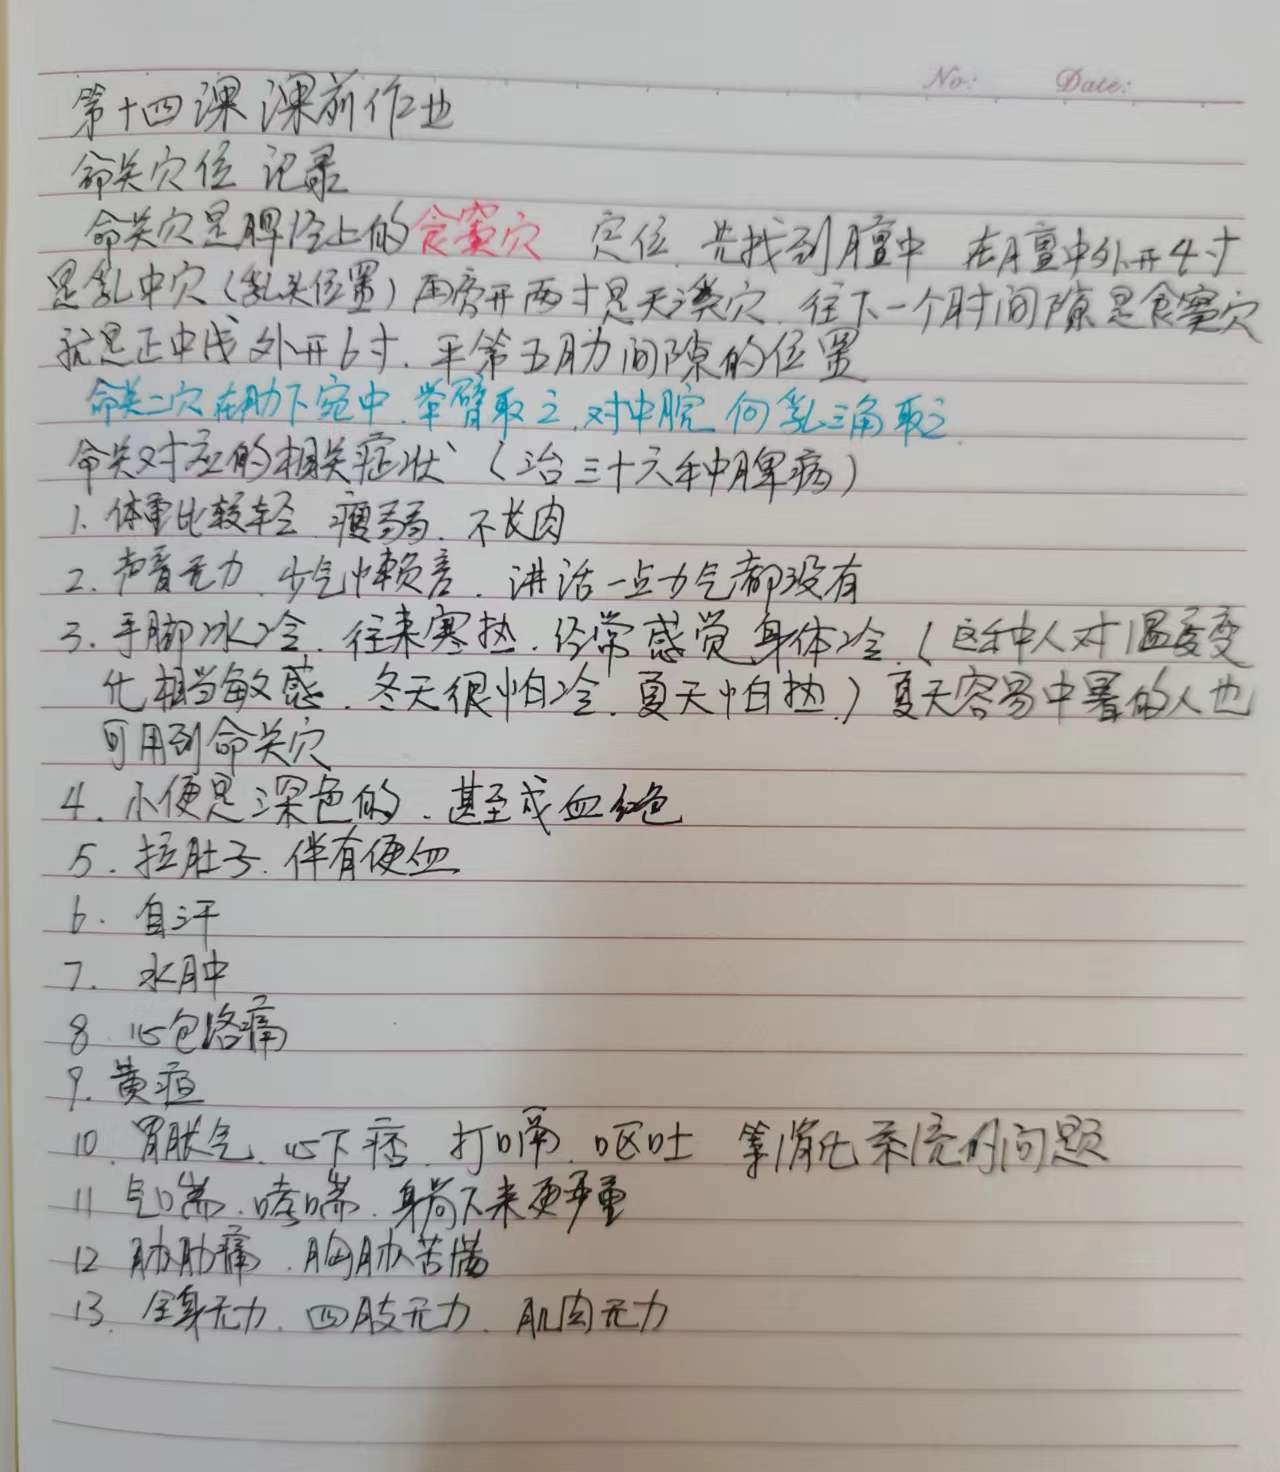 No: Date:
第十四课 课前作业
命关穴位 记录
命关穴是脾经上的食窦穴 穴位. 先找到膻中 在膻中外开4寸
是乳中穴(乳头位置)再旁开两寸是天溪穴. 往下一个肘间隙是食窦穴
就是正中线外开6寸. 平第五肋间隙的位置
命关二穴在肋下宛中. 举臂取之. 对中脘 向乳三角取之.
命关对应的相关症状 (治三十六种脾病)
1. 体重比较轻 瘦弱. 不长肉
2. 声音无力. 少气懒言. 讲话一点力气都没有
3. 手脚冰冷. 往来寒热. 经常感觉身体冷. (这种人对温度变
化相当敏感. 冬天很怕冷. 夏天怕热.) 夏天容易中暑的人也
可用到命关穴
4. 小便是深色的. 甚至成血红色
5. 拉肚子. 伴有便血
6. 自汗
7. 水肿
8. 心包络痛
9. 黄疸
10. 胃胀气. 心下痞. 打嗝. 呕吐 等消化系统的问题
11 气喘. 哮喘. 身荷下来更严重
12 胁肋痛. 胸胁苦满
13. 全身无力. 四肢无力. 肌肉无力